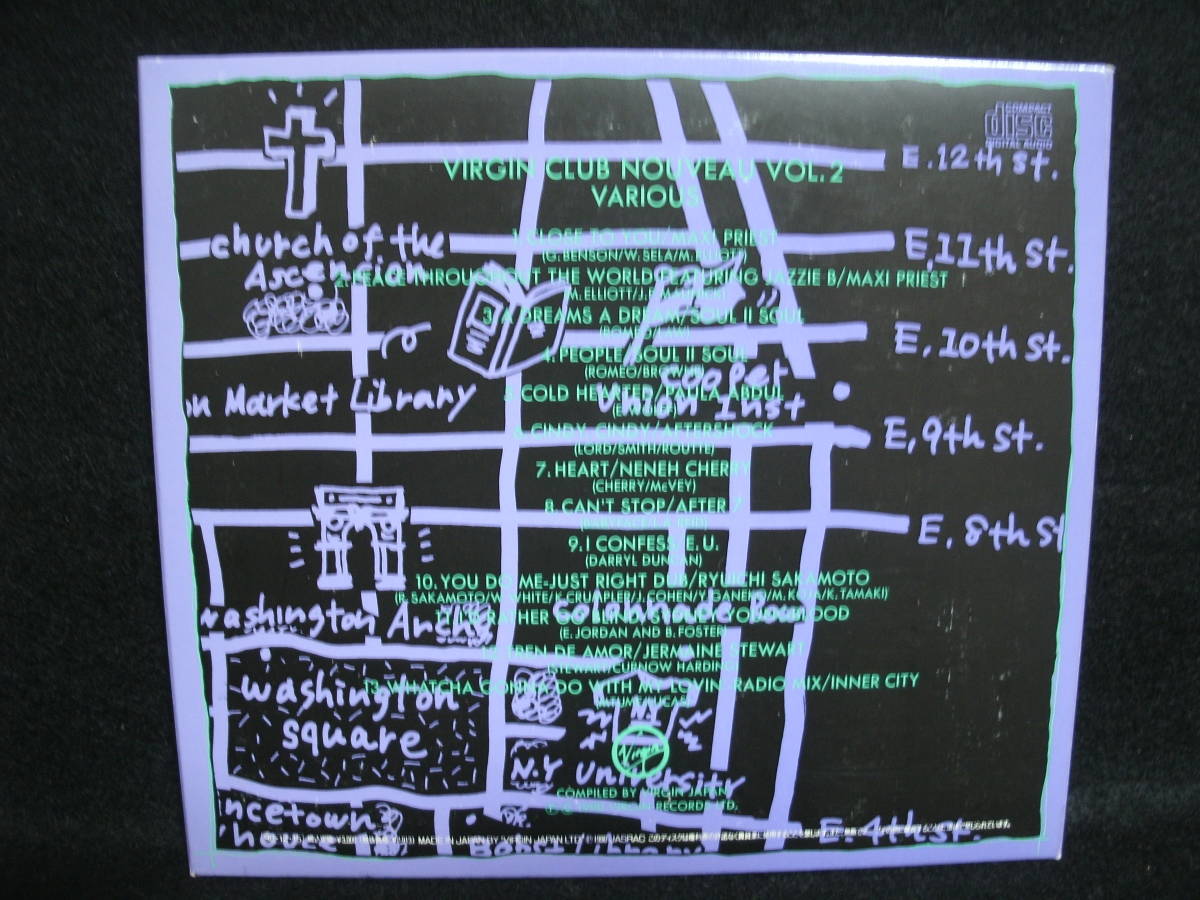 COMPACT
disc
DIGITAL AUDIO
E.12th St.
VIRGIN CLUB NOUVEAU VOL.2
VARIOUS
church of the
Ascension
E.11th St.
1. CLOSE TO YOU/MAXI PRIEST
(G. BENSON/W. SELA/M. ELLIOTT)
2. PEACE THROUGHOUT THE WORLD FEATURING JAZZIE B/MAXI PRIEST
3. A DREAMS A DREAM/SOUL II SOUL
(ROMEO/LAW)
E.10th St.
4. PEOPLE/SOUL II SOUL
(ROMEO/BROWNE)
cooper
Union Inst
on Market Library
5. COLD HEARTED/PAULA ABDUL
(E. WOLFF)
E.9th St.
6. CINDY CINDY/AFTERSHOCK
(LORD/SMITH/ROUTTE)
7. HEART/NENEH CHERRY
(CHERRY/McVEY)
8. CAN'T STOP/AFTER 7
(BABYFACE/L.A. REID)
E. 8th St
9. I CONFESS/E.U.
(DARRYL DUNCAN)
10. YOU DO ME-JUST RIGHT DUB/RYUICHI SAKAMOTO
(R. SAKAMOTO/W. WHITE/K. CRUMPLER/J. COHEN/Y. GANENO/M. KOTA/K. TAMAKI)
washington Arch
colonnade Row
11. I'D RATHER GO BLIND/SYDNEY YOUNGBLOOD
(E. JORDAN AND B. FOSTER)
12. TREN DE AMOR/JERMAINE STEWART
(STEWART/CURNOW HARDING)
13. WHATCHA GONNA DO WITH MY LOVIN' RADIO MIX/INNER CITY
(MTUME/LUCAS)
washington
square
Virgin
N.Y University
COMPILED BY VIRGIN JAPAN
VIRGIN RECORDS LTD.
ncetown
house
E. 4th St.
MADE IN JAPAN BY VIRGIN JAPAN LTD.
JASRAC
Library